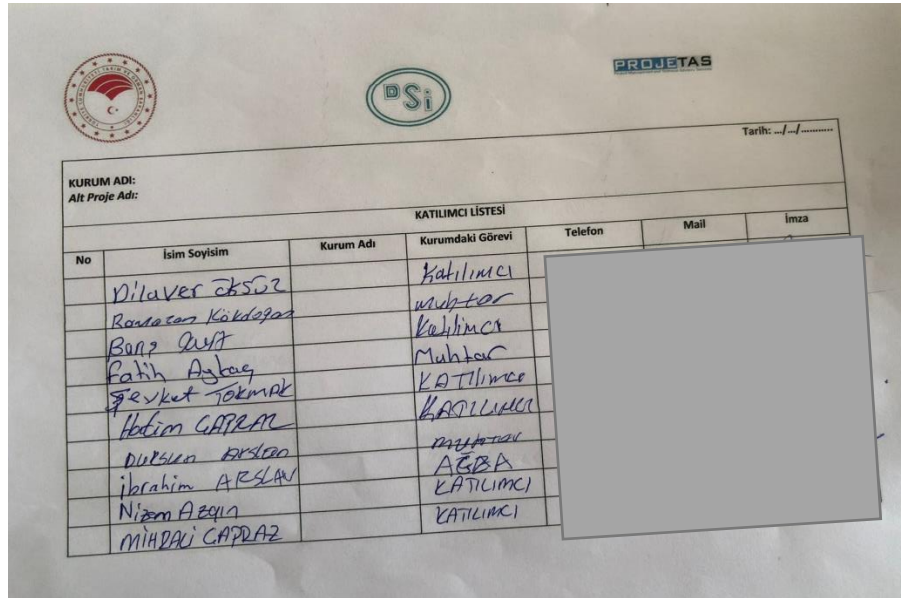 DSİ
PROJETAS
Tarih: .../.../...........
KURUM ADI:
Alt Proje Adı:
KATILIMCI LİSTESİ
No İsim Soyisim Kurum Adı Kurumdaki Görevi Telefon Mail İmza
Dilaver Öksüz Katılımcı
Ramazan Kökdoğan muhtar
Barış Katılımcı
Fatih Aytaç Muhtar
Şevket TOKMAK KATILIMCI
Hatim ÇAPRAZ KATILIMCI
Dursun Arslan muhtar
İbrahim ARSLAN AĞBA
Nizam Azgın KATILIMCI
MİHRALİ ÇAPRAZ KATILIMCI